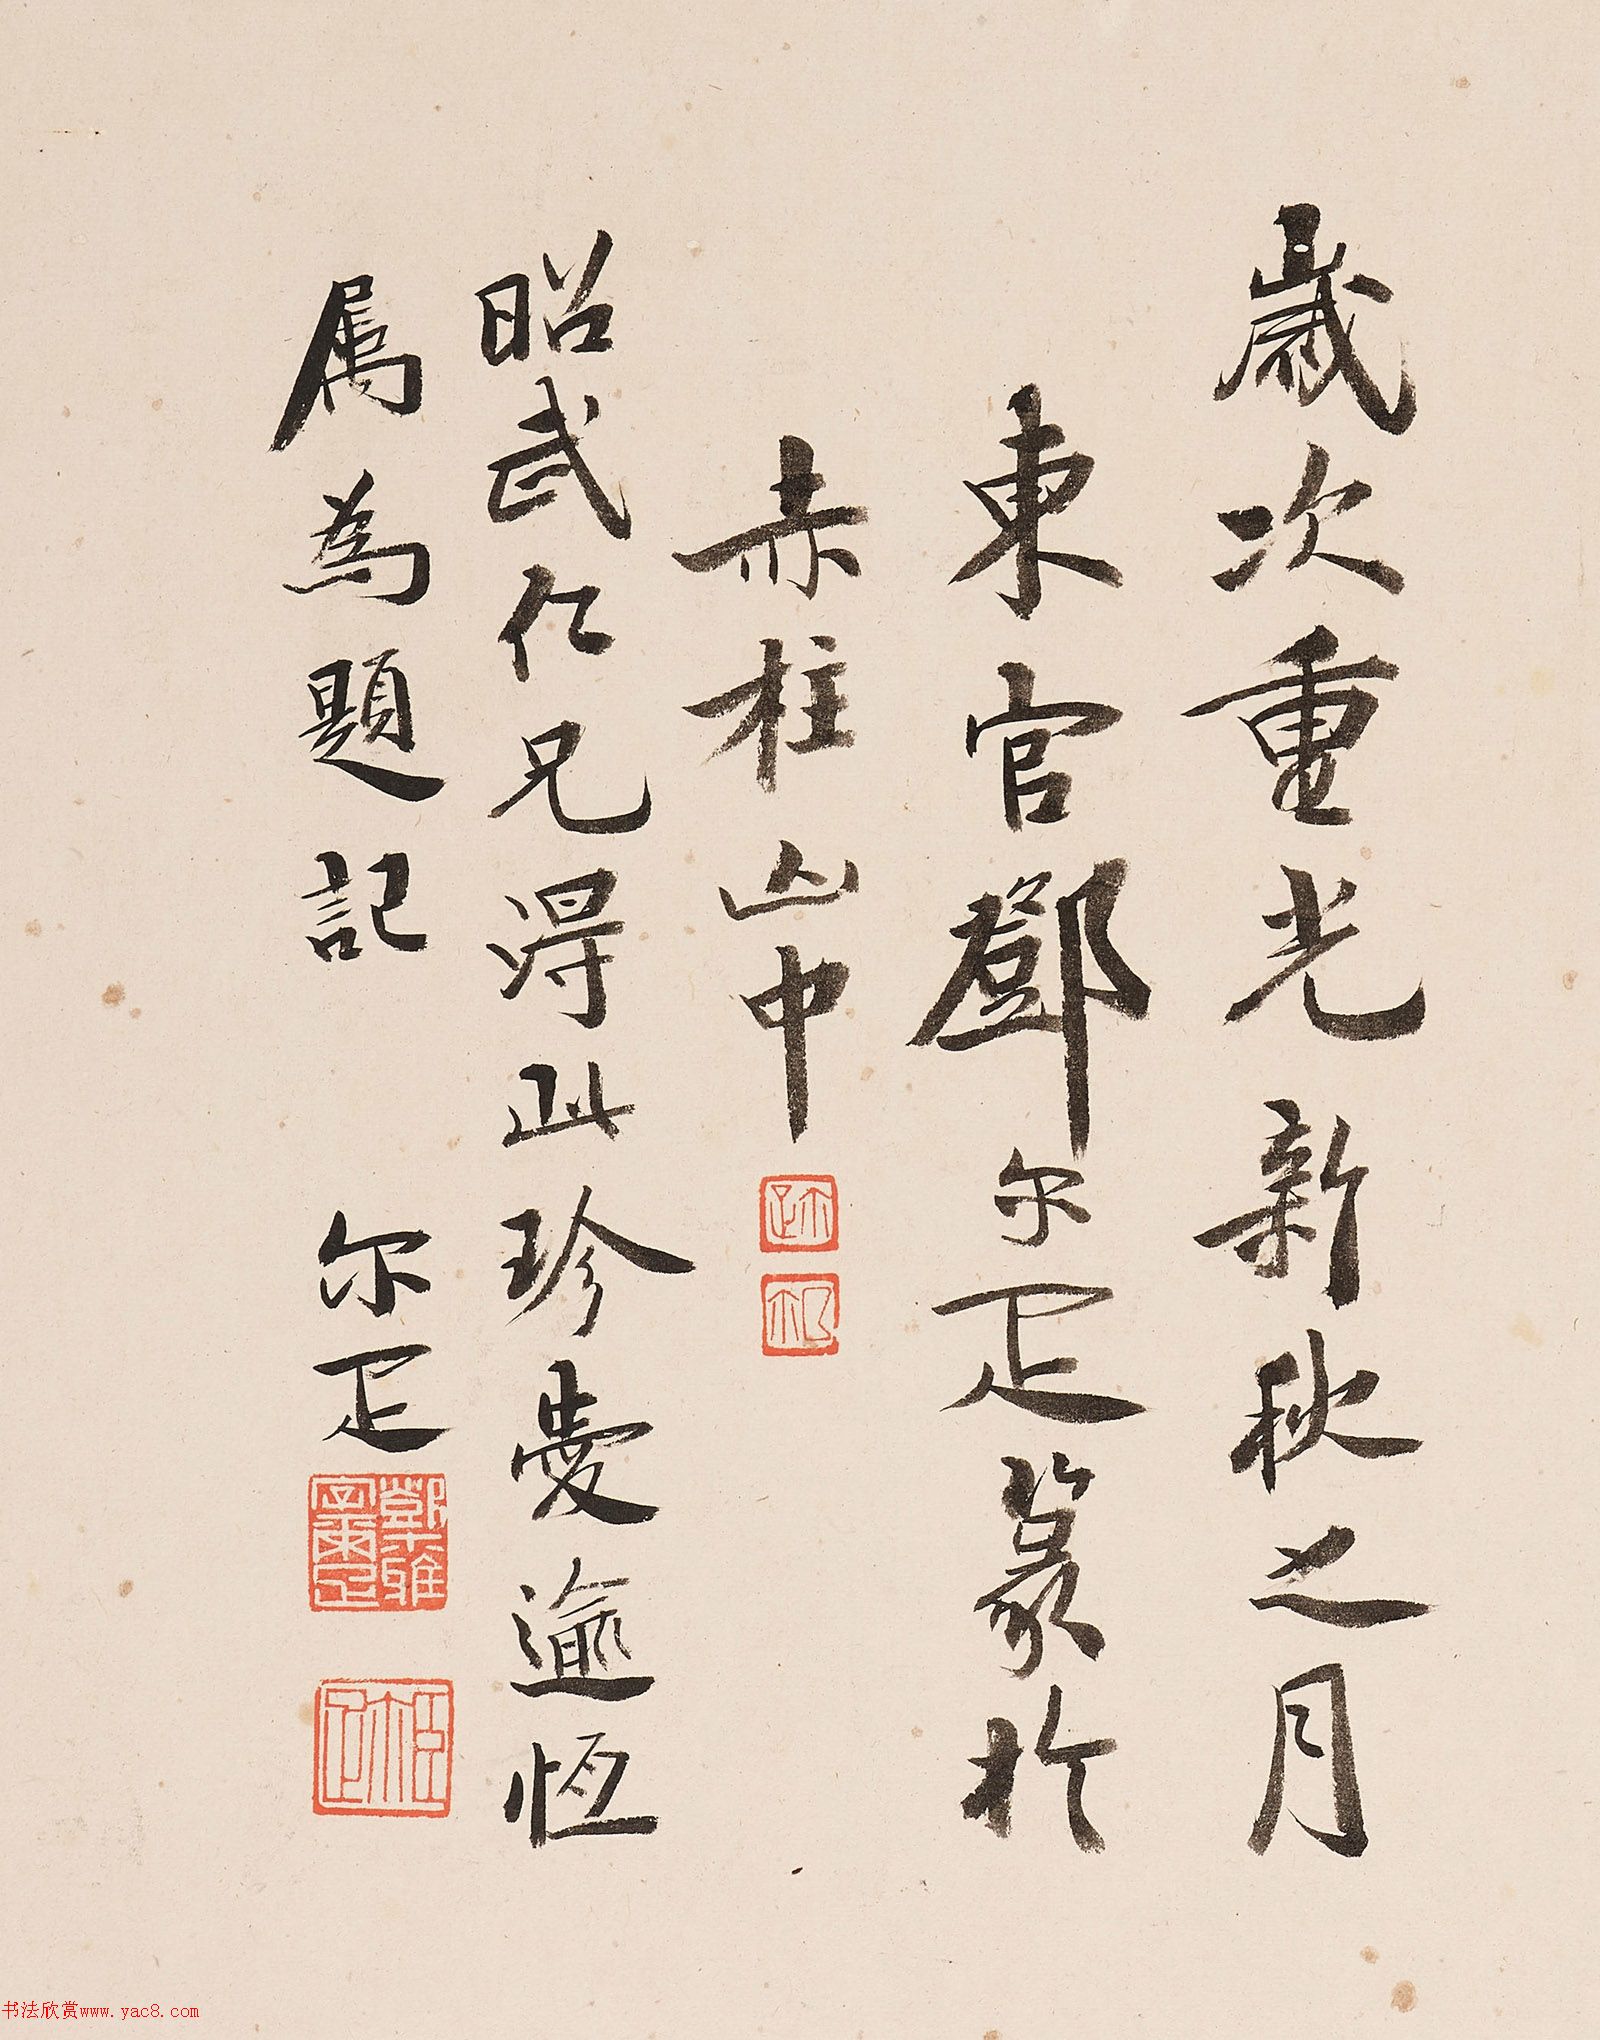 歲次重光新秋之月
東官鄧尔疋篆於
赤柱山中
昭武仁兄得此珍愛逾恆
属為題記 尔疋
书法欣赏www.yac8.com